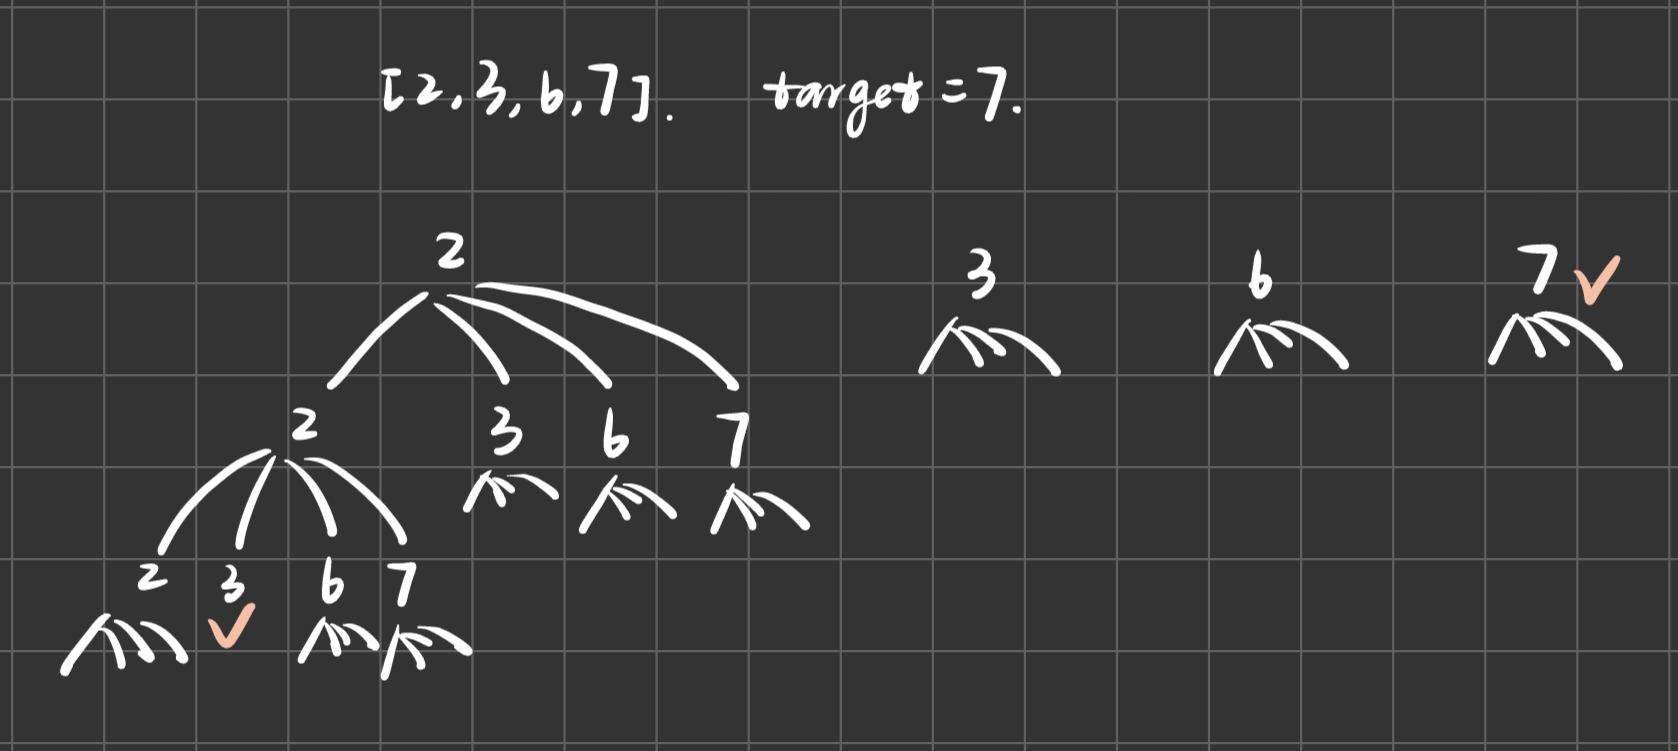 [2,3,6,7]. target=7.
2 3 6 7
2 3 6 7
2 3 6 7